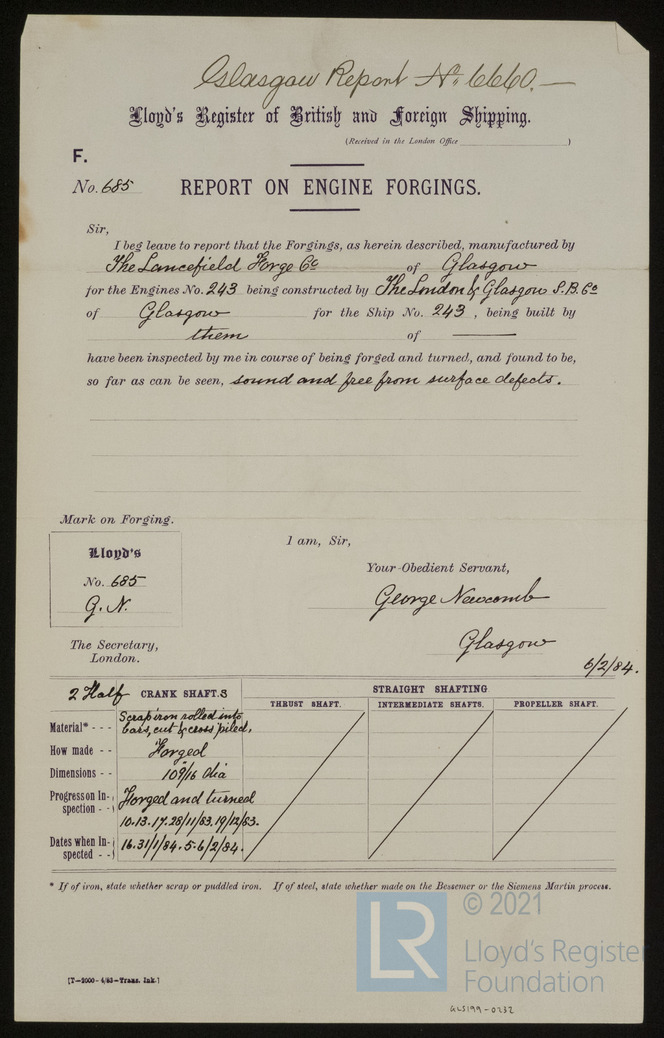 Glasgow Report No. 6660. —
Lloyd's Register of British and Foreign Shipping.
(Received in the London Office )
F.
No. 685 REPORT ON ENGINE FORGINGS.
Sir,
I beg leave to report that the Forgings, as herein described, manufactured by
The Lancefield Forge Co of Glasgow
for the Engines No. 243 being constructed by The London & Glasgow S.B. Co
of Glasgow for the Ship No. 243, being built by
them of —
have been inspected by me in course of being forged and turned, and found to be,
so far as can be seen, sound and free from surface defects.
Mark on Forging.
I am, Sir,
Lloyd's
Your Obedient Servant,
No. 685
George Newcomb
G. N.
Glasgow
The Secretary,
London.
6/2/84.
2 Half CRANK SHAFT.S
STRAIGHT SHAFTING
THRUST SHAFT. INTERMEDIATE SHAFTS. PROPELLER SHAFT.
Scrap iron rolled into
Material* - - - bars, cut & cross piled,
How made - - Forged
Dimensions - - 10 9/16 dia
Progress on In-
spection - - Forged and turned
10.13.17.28/11/83. 19/12/83.
Dates when In-
spected - - 16.31/1/84. 5.6/2/84.
* If of iron, state whether scrap or puddled iron. If of steel, state whether made on the Bessemer or the Siemens Martin process.
LR © 2021
Lloyd's Register
Foundation
[T—2000—4/83—Trans. Ink.]
GLS199-0232